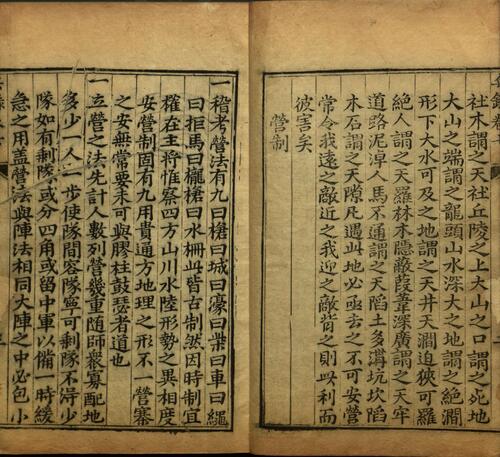 社木謂之天社丘陵之上大山之口謂之死地
大山之端謂之龍頭山水深大之地謂之絕澗
形下大水可及之地謂之天井天澗迫狹可羅
絕人謂之天羅林木隱蔽葭葦深廣謂之天牢
道路泥濘人馬不通謂之天陷土多溝坑坎陷
木石謂之天隙凡遇此地必亟去之不可安營
常令我遠之敵近之我迎之敵背之則此利而
彼害矣
營制
一稽考營法有九曰槍曰城曰壕曰柴曰車曰繩
曰拒馬曰櫳槍曰水柵此皆古制然因時制宜
權在主將惟察四方山川水陸形勢之異相度
安營制固有九用貴通方地理之形不一營寨
之安無常要未可與膠柱鼓瑟者道也
一立營之法先計人數列營幾重隨師衆寡配地
多少一人一步使隊間容隊寧可剩隊不得少
隊如有剩隊或分四角或留中軍以備一時緩
急之用蓋營法與陣法相同大陣之中必包小